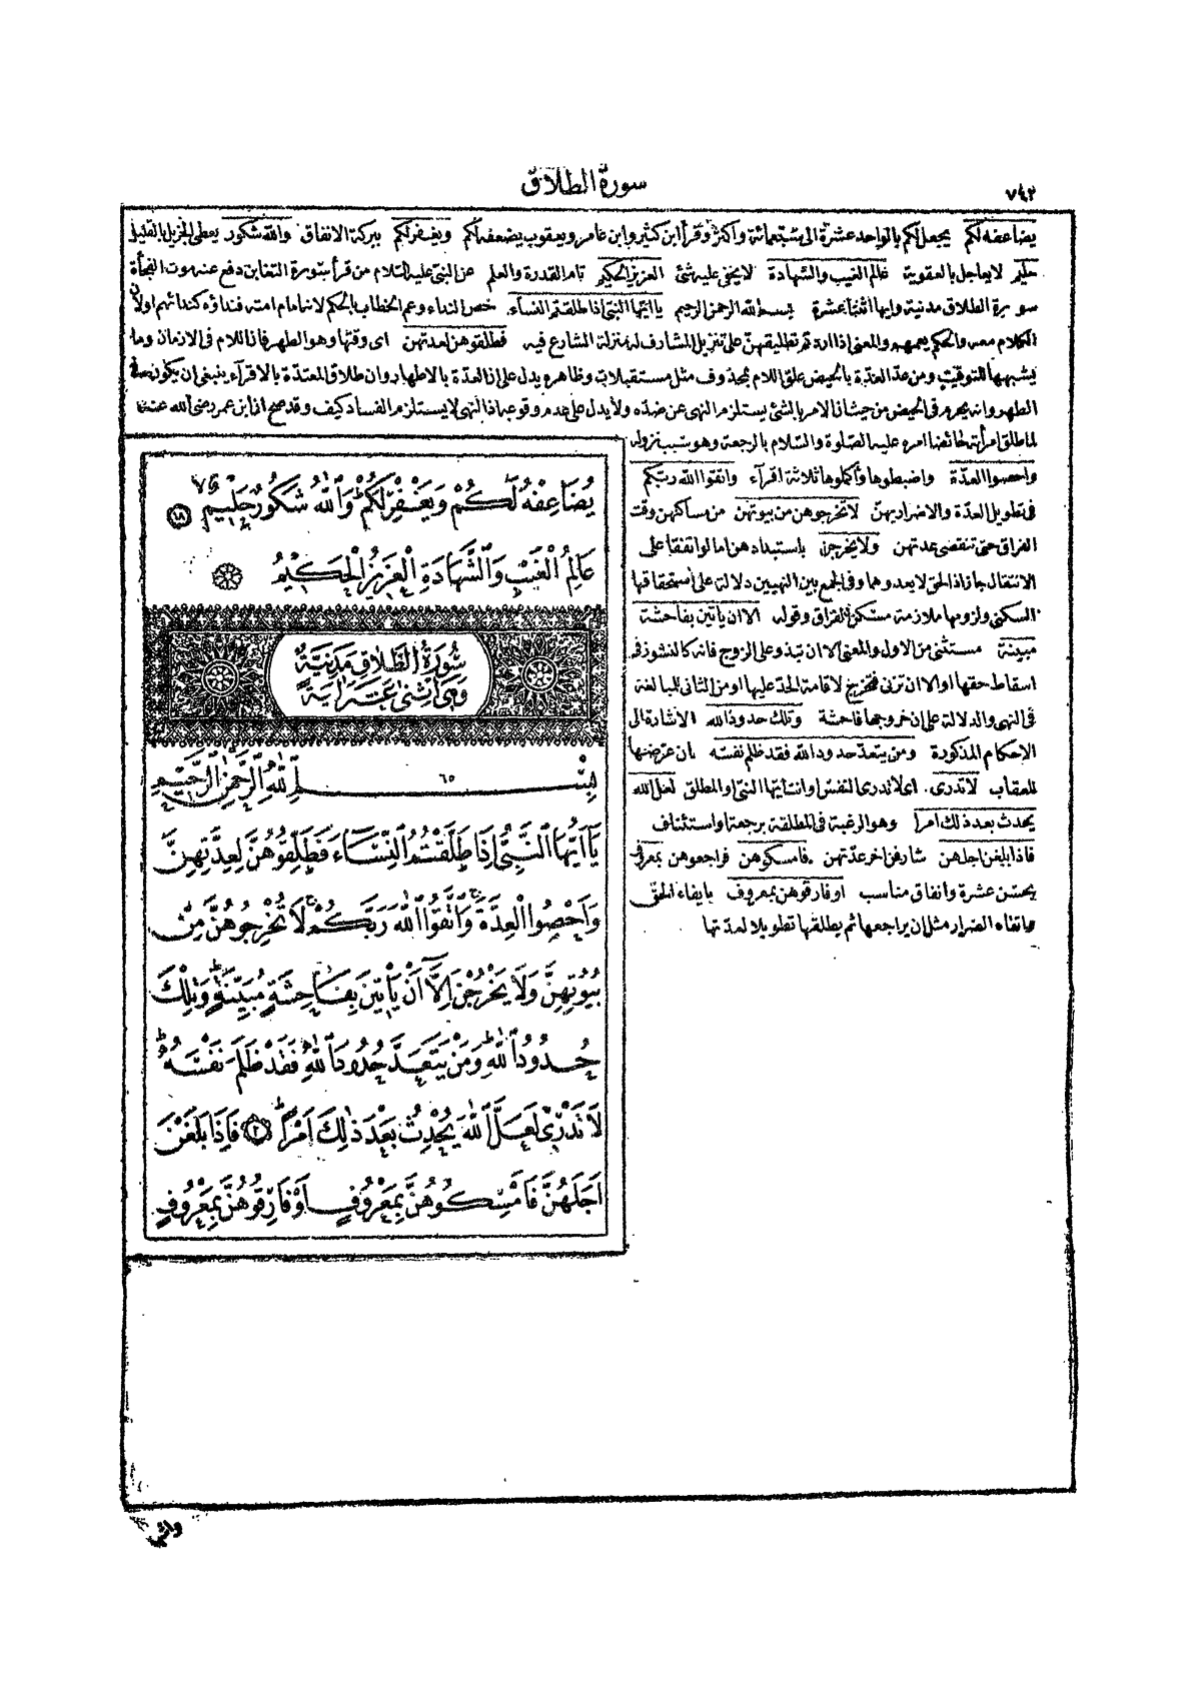 سورة الطلاق
٧٤٢
يضاعفه لكم يجعل لكم بالواحد عشرة الى سبعمائة واكثر وقرأ ابن كثير وابن عامر ويعقوب يضعفه لكم ويغفر لكم ببركة الانفاق والله شكور يعطى الجزيل بالقليل
حليم لا يعاجل بالعقوبة عالم الغيب والشهادة لا يخفى عليه شئ العزيز الحكيم تام القدرة والعلم عن النبى عليه السلام من قرأ سورة التغابن دفع عنه موت الفجأة
سورة الطلاق مدنية وايها اثنتا عشرة بسم الله الرحمن الرحيم يا ايها النبى اذا طلقتم النساء خص النداء وعم الخطاب بالحكم لانه امام امته فنداؤه كندائهم اولان
الكلام معه والحكم يعمهم والمعنى اذا اردتم تطليقهن على تنزيل المشارف له منزلة الشارع فيه فطلقوهن لعدتهن اى وقتها وهو الطهر فان اللام فى الازمان وما
يشبهها للتوقيت ومن عد العدة بالحيض علق اللام بمحذوف مثل مستقبلات وظاهره يدل على ان العدة بالاطهار وان طلاق المعتدة بالاقرآء ينبغى ان يكون فى
الطهر وانه يحرم فى الحيض من حيث ان الامر بالشئ يستلزم النهى عن ضده ولا يدل على عدم وقوعه اذ النهى لا يستلزم الفساد كيف وقد صح ان ابن عمر رضى الله عنهما
لما طلق امرأته حائضا امره عليه الصلوة والسلام بالرجعة وهو سبب نزوله
واحصوا العدة واضبطوها واكملوها ثلاثة اقرآء واتقوا الله ربكم
فى تطويل العدة والاضرار بهن لا تخرجوهن من بيوتهن من مساكنهن وقت
الفراق حتى تنقضى عدتهن ولا يخرجن باستبدادهن اما لو اتفقا على
الانتقال جاز اذ الحق لا يعدوهما وفى الجمع بين النهيين دلالة على استحقاقها
السكنى ولزومها ملازمة مسكن الفراق وقوله الا ان يأتين بفاحشة
مبينة مستثنى من الاول والمعنى الا ان تبذو على الزوج فانه كالنشوز فى
اسقاط حقها او الا ان تزنى فتخرج لاقامة الحد عليها او من الثانى للمبالغة
فى النهى والدلالة على ان خروجها فاحشة وتلك حدود الله الاشارة الى
الاحكام المذكورة ومن يتعد حدود الله فقد ظلم نفسه بان عرضها
للعقاب لا تدرى اى لا تدرى النفس او انت ايها النبى او المطلق لعل الله
يحدث بعد ذلك امرا وهو الرغبة فى المطلقة برجعة او استئناف
فاذا بلغن اجلهن شارفن اخر عدتهن فامسكوهن فراجعوهن بمعروف
بحسن عشرة وانفاق مناسب او فارقوهن بمعروف بايفاء الحق
واتقاء الضرار مثل ان يراجعها ثم يطلقها تطويلا لعدتها
يُضَاعِفْهُ لَكُمْ وَيَغْفِرْ لَكُمْ وَاللّٰهُ شَكُورٌ حَلِيمٌ ١٧
عَالِمُ الْغَيْبِ وَالشَّهَادَةِ الْعَزِيزُ الْحَكِيمُ
سُورَةُ الطَّلَاقِ مَدَنِيَّةٌ
وَهِيَ اثْنَتَى عَشَرَ اٰيَةً
بِسْمِ اللّٰهِ الرَّحْمٰنِ الرَّحِيمِ ٦٥
يَا اَيُّهَا النَّبِيُّ اِذَا طَلَّقْتُمُ النِّسَاءَ فَطَلِّقُوهُنَّ لِعِدَّتِهِنَّ
وَاَحْصُوا الْعِدَّةَ وَاتَّقُوا اللّٰهَ رَبَّكُمْ لَا تُخْرِجُوهُنَّ مِنْ
بُيُوتِهِنَّ وَلَا يَخْرُجْنَ اِلَّا اَنْ يَأْتِينَ بِفَاحِشَةٍ مُبَيِّنَةٍ وَتِلْكَ
حُدُودُ اللّٰهِ وَمَنْ يَتَعَدَّ حُدُودَ اللّٰهِ فَقَدْ ظَلَمَ نَفْسَهُ
لَا تَدْرِى لَعَلَّ اللّٰهَ يُحْدِثُ بَعْدَ ذٰلِكَ اَمْرًا ٢ فَاِذَا بَلَغْنَ
اَجَلَهُنَّ فَاَمْسِكُوهُنَّ بِمَعْرُوفٍ اَوْ فَارِقُوهُنَّ بِمَعْرُوفٍ